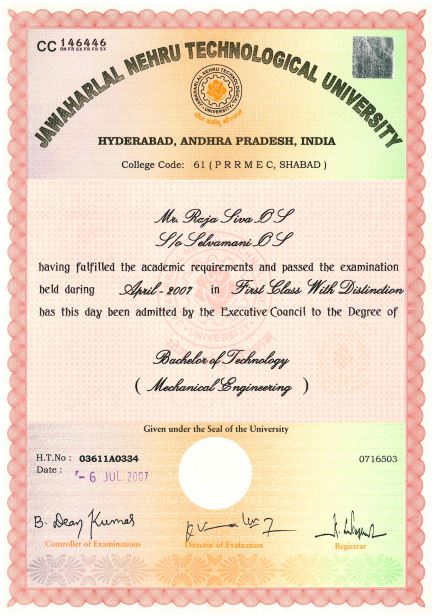 CC 146446
ON FR SX FR FR SX
JAWAHARLAL NEHRU TECHNOLOGICAL UNIVERSITY
HYDERABAD, ANDHRA PRADESH, INDIA
College Code: 61 ( P R R M E C, SHABAD )
Mr. Raja Siva O S
S/o Selvamani O S
having fulfilled the academic requirements and passed the examination
held during April - 2007 in First Class With Distinction
has this day been admitted by the Executive Council to the Degree of
Bachelor of Technology
( Mechanical Engineering )
Given under the Seal of the University
H.T.No : 03611A0334 0716503
Date : - 6 JUL 2007
Controller of Examinations Director of Evaluation Registrar